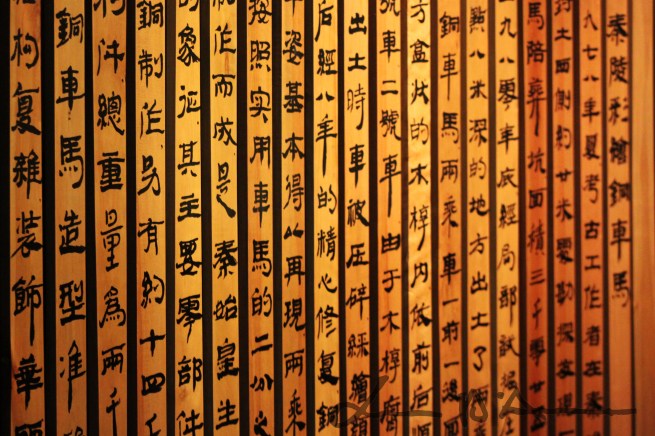 秦陵彩繪銅車馬
九七八年夏考古工作者在秦
封土西側約廿米要勘探發現一
馬陪葬坑面積三千零廿
九八零年底經局部試掘
點八米深的地方出土了兩
銅車馬兩乘車一前一後
方盒狀的木椁內依前后順
號車二號車由于木椁腐
出土時車被压碎綵繪
后經八年的精心修复銅
車姿基本得以再現兩乘
按照实用車馬的二分之
制作而成是秦始皇生
的象征其主要零部件
銅制作另有約十四千
构件總重量為兩千
銅車馬造型准
结构复雜装飾華